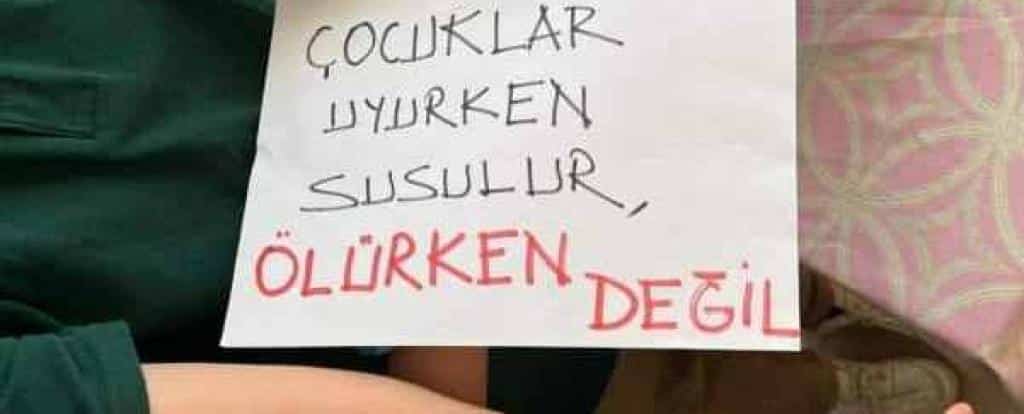 ÇOCUKLAR
UYURKEN
SUSULUR,
ÖLÜRKEN DEĞİL